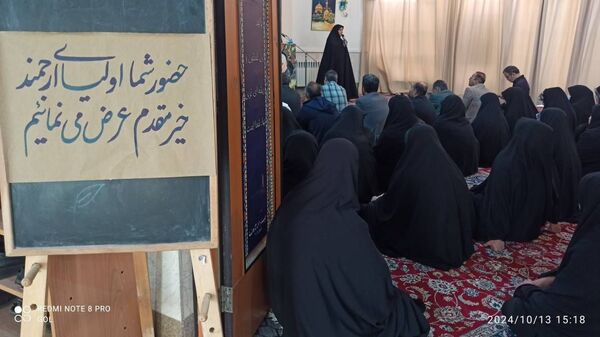 حضور شما اولیای ارجمند
خیر مقدم عرض می نمائیم
REDMI NOTE 8 PRO
GOL
2024/10/13 15:18